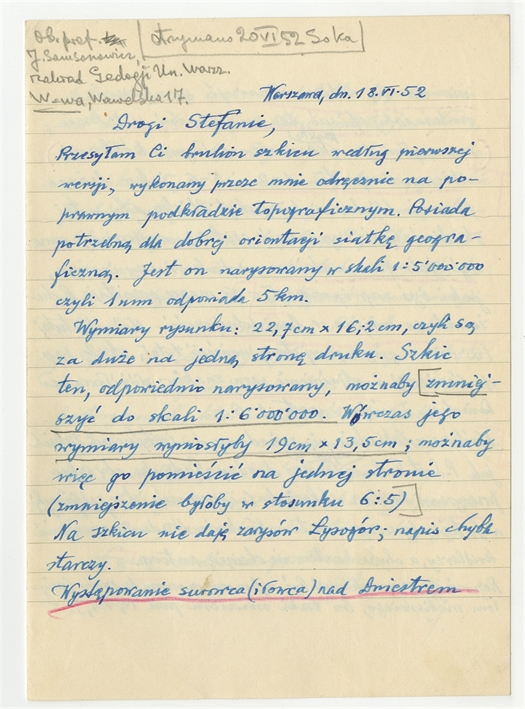 Ob. prof.
J. Samsonowicz,
Zakład Geologji Un. Warsz.
Wawa, Wawelska 17.
otrzymano 20 VI 52 Soka
Warszawa, dn. 18.VI.52
Drogi Stefanie,
Przesyłam Ci brulion szkicu według pierwszej
wersji, wykonany przeze mnie odręcznie na po-
prawnym podkładzie topograficznym. Posiada
potrzebną dla dobrej orientacji siatkę geogra-
ficzną. Jest on narysowany w skali 1:5'000'000
czyli 1 mm odpowiada 5 km.
Wymiary rysunku: 22,7cm × 16,2cm, czyli są
za duże na jedną stronę druku. Szkic
ten, odpowiednio narysowany, możnaby zmniej-
szyć do skali 1:6'000'000. Wówczas jego
wymiary wynosiłyby 19cm × 13,5cm; możnaby
więc go pomieścić na jednej stronie
(zmniejszenie byłoby w stosunku 6:5)
Na szkicu nie dają zarysów Łysogór; napis chyba
starczy.
Występowanie surowca (iłowca) nad Dniestrem